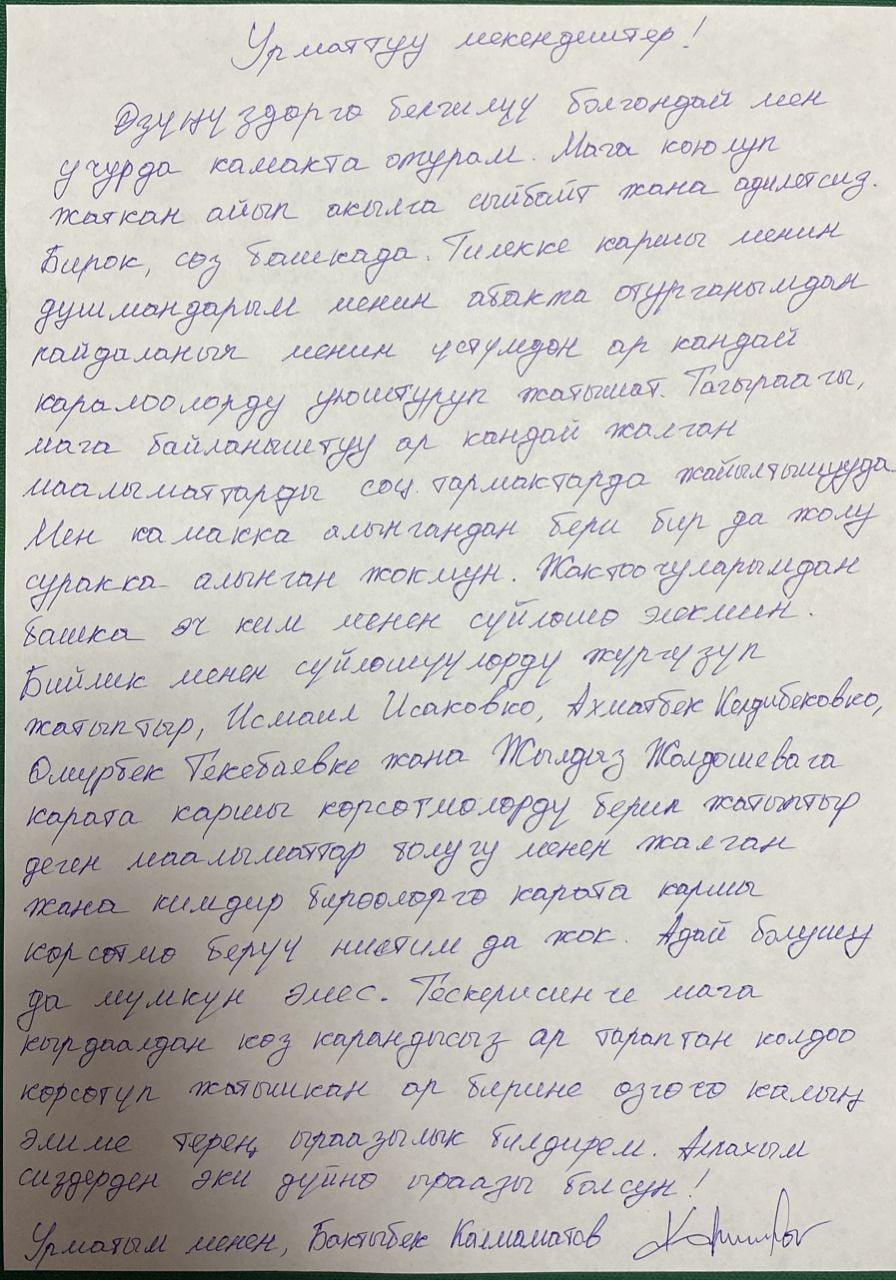 Урматтуу мекендештер!
Өзүңүздөргө белгилүү болгондай мен
учурда камакта отурам. Мага коюлуп
жаткан айып акылга сыйбайт жана адилетсиз.
Бирок, сөз башкада. Тилекке каршы менин
душмандарым менин абакта отурганымдан
пайдаланып менин үстүмдөн ар кандай
каралоолорду уюштуруп жатышат. Тагыраагы,
мага байланыштуу ар кандай жалган
маалыматтарды соц. тармактарда жайылтышууда
Мен камакка алынгандан бери бир да жолу
суракка алынган жокмун. Жактоочуларымдан
башка эч ким менен сүйлөшө элекмин.
Бийлик менен сүйлөшүүлөрдү жүргүзүп
жатыптыр, Исмаил Исаковко, Ахматбек Келдибековко,
Өмүрбек Текебаевке жана Жылдыз Жолдошевага
карата каршы көрсөтмөлөрдү берип жатыптыр
деген маалыматтар толугу менен жалган
жана кимдир бирөөлөргө карата каршы
көрсөтмө берүү ниетим да жок. Андай болушу
да мүмкүн эмес. Тескерисинче мага
кырдаалдан көз карандысыз ар тараптан колдоо
көрсөтүп жатышкан ар бирине өзгөчө калың
элиме терең ыраазылык билдирем. Аллахым
сиздерден эки дүйнө ыраазы болсун!
Урматым менен, Бактыбек Калмаматов